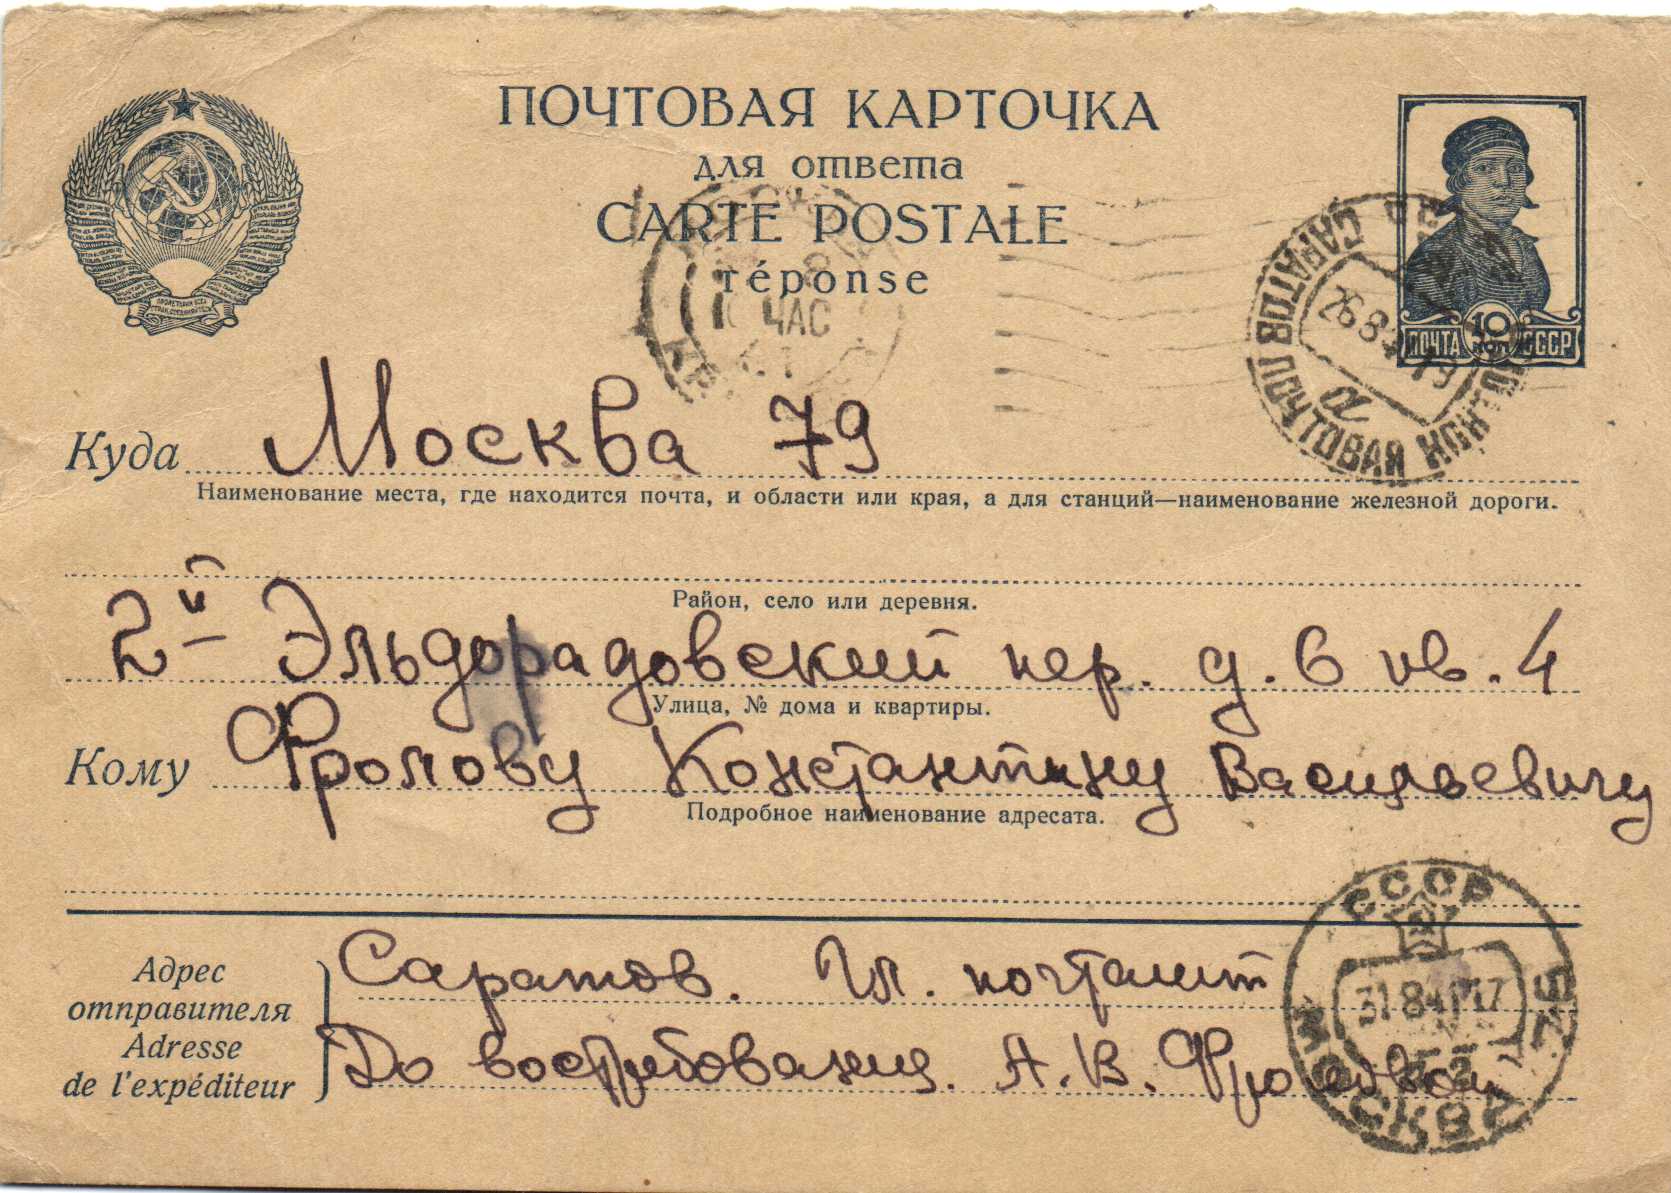 ПОЧТОВАЯ КАРТОЧКА
для ответа
CARTE POSTALE
réponse
ЧАС
ПОЧТА 10 КОП СССР
САРАТОВ
26 8 41 19
а
ПОЧТОВАЯ
Куда Москва 79
Наименование места, где находится почта, и области или края, а для станций—наименование железной дороги.
Район, село или деревня.
2й Эльдорадовский пер. д. 6 кв. 4
Улица, № дома и квартиры.
Кому Фролову Константину Васильевичу
Подробное наименование адресата.
Адрес отправителя
Adresse de l'expéditeur
Саратов. Гл. почтамт
До востребования. А. В. Фроловой
СССР
31 8 41 17
МОСКВА